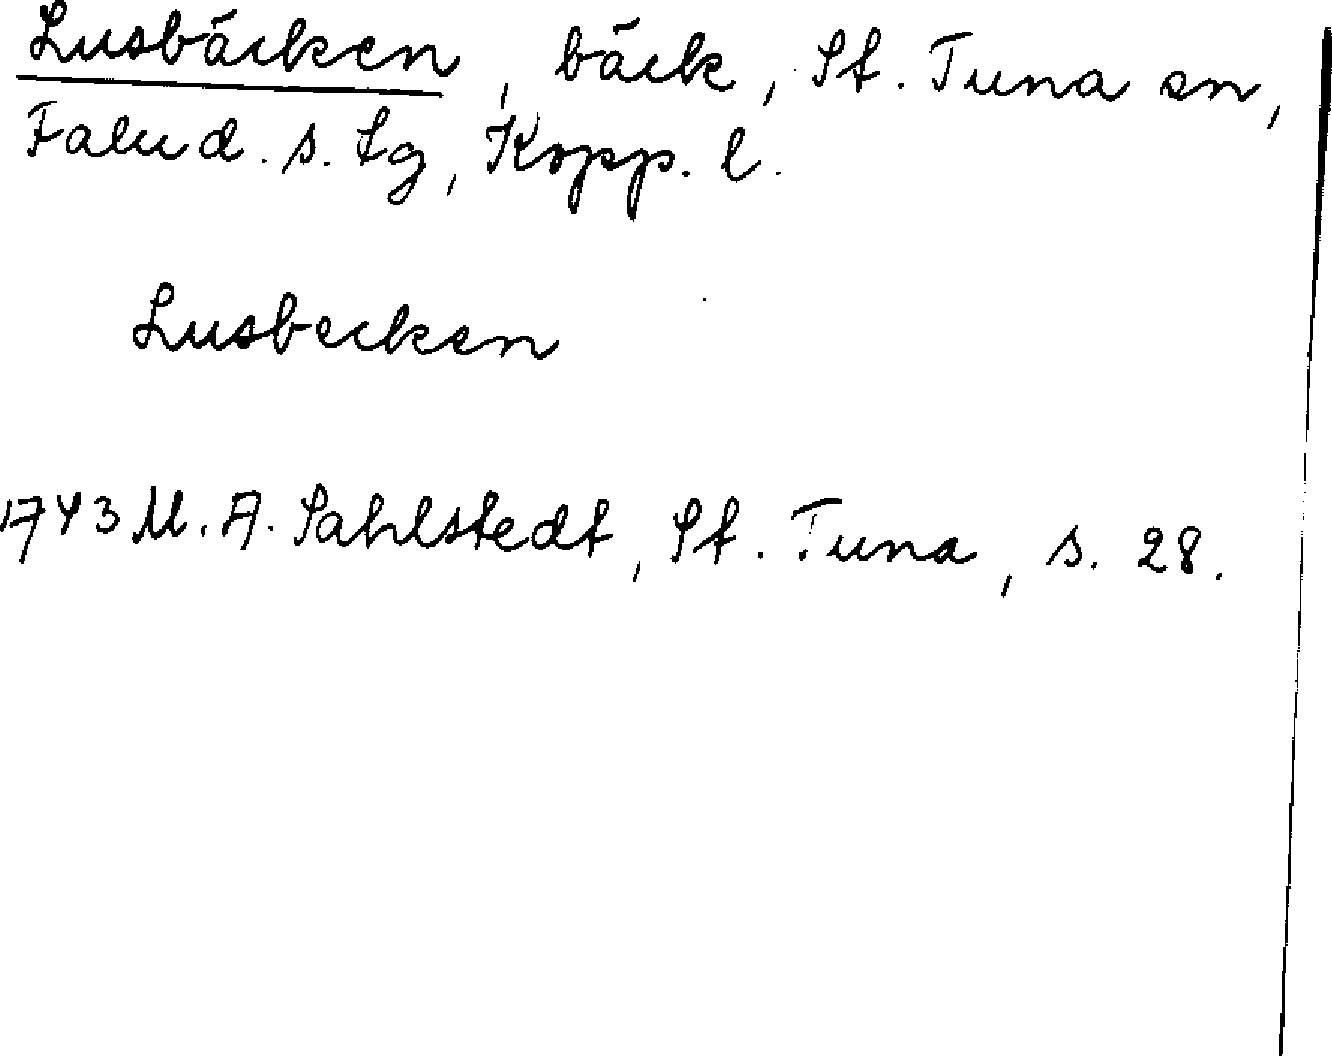 Lusbäcken, bäck, St. Tuna sn,
Falu d. s. tg, Kopp. l.
Lusbecken
1743 M. A. Sahlstedt, St. Tuna, s. 28.